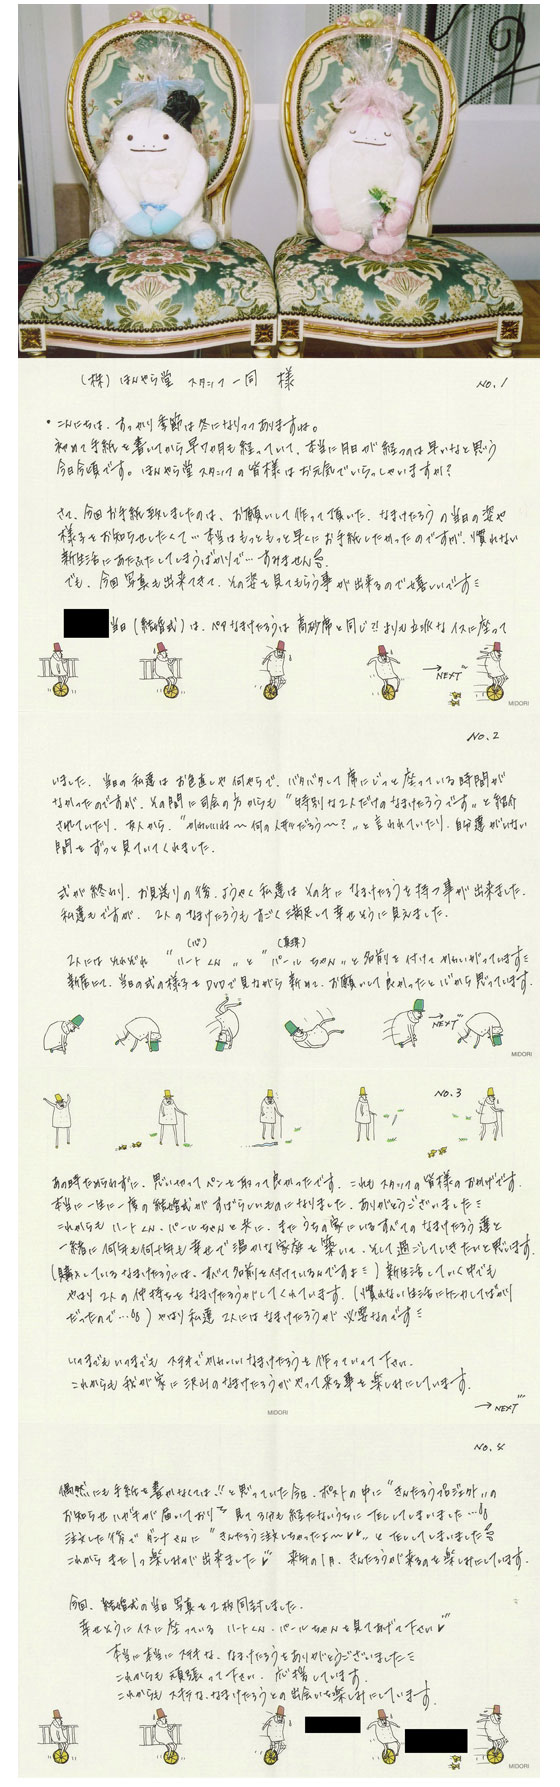 (株)ほんやら堂 スタッフ一同 様
NO.1
・こんにちは。すっかり季節は冬になりつつありますね。
初めて手紙を書いてから早7ヶ月も経っていて、本当に月日が経つのは早いなと思う
今日今頃です。ほんやら堂スタッフの皆様はお元気でいらっしゃいますか?
さて、今回お手紙致しましたのは、お願いして作って頂いた、なまけたろうの当日の姿や
様子をお知らせしたくて…本当はもっともっと早くにお手紙したかったのですが、慣れない
新生活にあたふたしてしまうばかりで…すみません
でも、今回写真も出来てきて、その姿を見てもらう事が出来るので嬉しいです
当日(結婚式)は、ペアなまけたろうは高砂席と同じ?!よりも立派なイスに座って
→NEXT
MIDORI
NO.2
いました。当日の私達はお色直しや何やらで、バタバタして席にじっと座っている時間が
なかったのですが、その間に司会の方からも"特別な2人だけのなまけたろうです"と紹介
されていたり、友人から、"かわいいね〜何の人形だろう〜?"と言われていたり、自分達がいない
間をずっと見ていてくれました。
式が終わり、お見送りの後、ようやく私達はその手になまけたろうを持つ事が出来ました。
私達もですが、2人のなまけたろうもすごく満足して幸せそうに見えました。
(心)
(真珠)
2人にはそれぞれ"ハートくん"と"パールちゃん"と名前を付けてかわいがっています
新居にて、当日の式の様子をDVDで見ながら新めて、お願いして良かったと心から思っています。
→NEXT
MIDORI
NO.3
あの時ためらわずに、思いやってペンを取って良かったです。これもスタッフの皆様のおかげです。
本当に一生に一度の結婚式がすばらしいものになりました。ありがとうございました
これからもハートくん、パールちゃんと共に、またうちの家にいるすべてのなまけたろう達と
一緒に何年も何十年も幸せで温かな家庭を築いて、そして過ごしていきたいと思います。
(購入しているなまけたろうには、すべて名前を付けているんですよ)新生活していく中でも
やはり2人の仲持ちをなまけたろうがしてくれています。(慣れない生活にケンカしてばかり
だったので…)やはり私達2人にはなまけたろうが必要なのです
いつまでもいつまでもステキでかわいいなまけたろうを作っていって下さい。
これからも我が家に沢山のなまけたろうがやって来る事を楽しみにしています。
→NEXT
MIDORI
NO.4
偶然にも手紙を書かなくては!!と思っていた今日、ポストの中に"きんたろうプロジェクト"の
お知らせハガキが届いており、見て3分も経たないうちにTELしてしまいました…
注文した後でダンナさんに"きんたろう注文しちゃったよ〜♥♥"とTELしてしまいました
これからまた1つ楽しみが出来ました♥ 来年の1月、きんたろうが来るのを楽しみにしています。
今回、結婚式の当日写真を2枚同封しました。
幸せそうにイスに座っているハートくん、パールちゃんを見てあげて下さい
本当に本当にステキな、なまけたろうをありがとうございました
これからも頑張って下さい。応援しています。
これからもステキな、なまけたろうとの出会いを楽しみにしています。
MIDORI